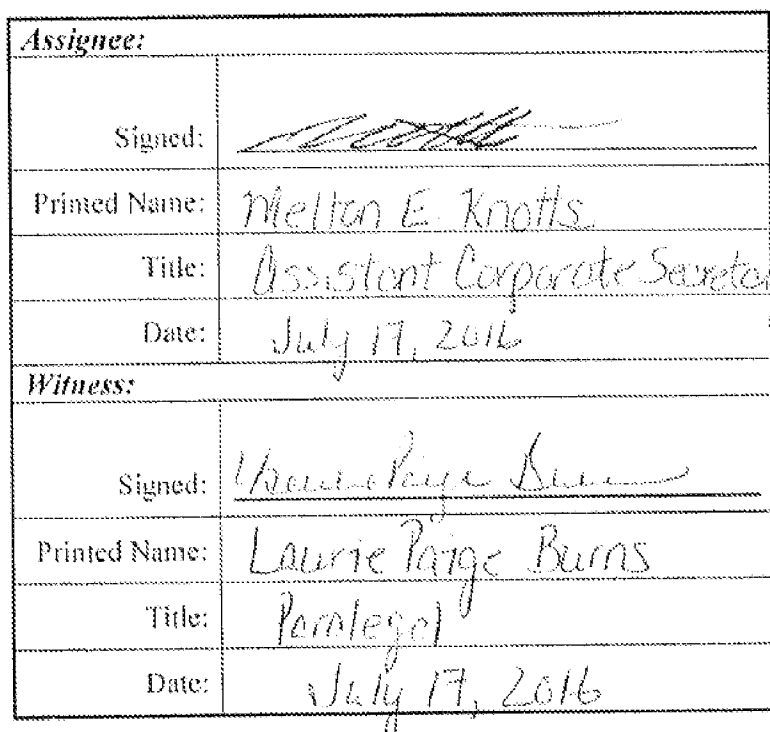 Assignee:
Signed:
Printed Name: Melton E. Knotts
Title: Assistant Corporate Secreta
Date: July 17, 2016
Witness:
Signed: Laurie Paige Burns
Printed Name: Laurie Paige Burns
Title: Paralegal
Date: July 17, 2016